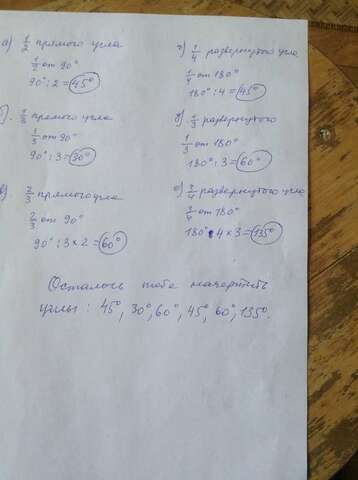 а) 1/2 прямого угла
1/2 от 90°
90° : 2 = 45°
1/3 прямого угла
1/3 от 90°
90° : 3 = 30°
в) 2/3 прямого угла
2/3 от 90°
90° : 3 × 2 = 60°
г) 1/4 развернутого угла
1/4 от 180°
180° : 4 = 45°
1/3 развернутого
1/3 от 180°
180° : 3 = 60°
е) 3/4 развернутого угла
3/4 от 180°
180° : 4 × 3 = 135°
Осталось тебе начертить
углы : 45°, 30°, 60°, 45°, 60°, 135°.